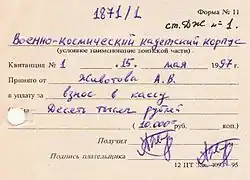 1871/1 Форма № 11
ст. ДЖ № 1.
Военно-космический кадетский корпус
(условное наименование воинской части)
Квитанция № 1 15. мая 1997.
Принято от Животова А. В.
в уплату за взнос в кассу
Десять тысяч рублей
(10.000= руб
Получил
Подпись плательщика
12 ПТ Зак. 10933-95